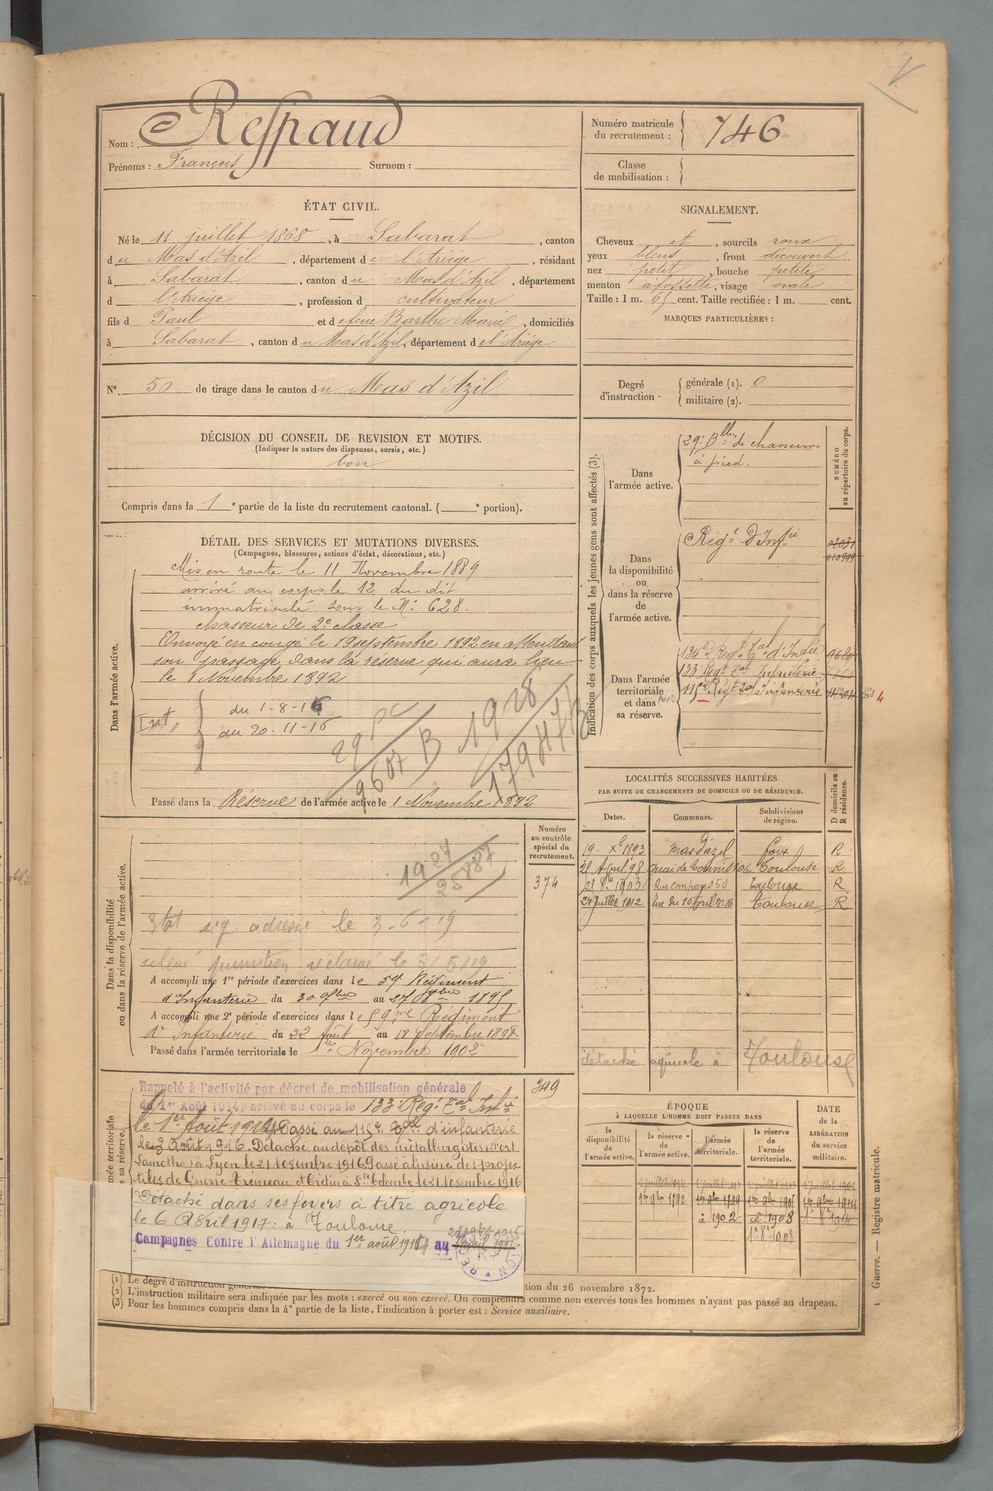 Nom : Respaud
Prénoms : François Surnom :
Numéro matricule du recrutement : 746
Classe de mobilisation :
ÉTAT CIVIL.
Né le 11 juillet 1868, à Sabarat, canton
du Mas d'Azil, département de l'Ariège, résidant
à Sabarat, canton du Mas d'Azil, département
d l'Ariège, profession de cultivateur
fils d Paul et de feue Barthe Marie, domiciliés
à Sabarat, canton du Mas d'Azil, département de l'Ariège
N° 50 de tirage dans le canton du Mas d'Azil
SIGNALEMENT.
Cheveux et, sourcils roux
yeux bleus, front découvert
nez petit, bouche petite
menton à fossette, visage ovale
Taille : 1 m. 65 cent. Taille rectifiée : 1 m. cent.
MARQUES PARTICULIÈRES :
Degré d'instruction : générale (1). 0
militaire (2).
DÉCISION DU CONSEIL DE REVISION ET MOTIFS.
(Indiquer la nature des dispenses, sursis, etc.)
bon
Compris dans la 1e partie de la liste du recrutement cantonal. ( e portion).
DÉTAIL DES SERVICES ET MUTATIONS DIVERSES.
(Campagnes, blessures, actions d'éclat, décorations, etc.)
Dans l'armée active.
Mis en route le 11 Novembre 1889
arrivé au corps le 12 du dit
immatriculé sous le N° 628.
chasseur de 2e classe
Envoyé en congé le 19 septembre 1892 en attendant
son passage dans la réserve qui aura lieu
le 1 Novembre 1892
du 1-8-16
du 20-11-16
29 PC
9607 B
1928
179478
Passé dans la Réserve de l'armée active le 1 Novembre 1892
Indication des corps auxquels les jeunes gens sont affectés (3).
NUMÉRO au répertoire du corps.
Dans l'armée active.
29e Bllon de chasseurs
à pied.
Dans la disponibilité ou dans la réserve de l'armée active.
Régt d'Infie
Dans l'armée territoriale et dans sa réserve.
134e Régt Tal d'Infie
133 Régt Tal Infanterie
118e Régt Tal d'infanterie
LOCALITÉS SUCCESSIVES HABITÉES
PAR SUITE DE CHANGEMENTS DE DOMICILE OU DE RÉSIDENCE.
D domicile ou R résidence.
Dates. Communes. Subdivisions de région.
19 Xe 1893 Mas d'azil Foix R
21 Avril 98 Quai de Tounis Toulouse R
Rue compans Toulouse R
24 Juillet 1912 Rue du 10 avril Toulouse R
détaché agricole à Toulouse
Dans la disponibilité ou dans la réserve de l'armée active.
Numéro au contrôle spécial du recrutement.
374
1927
25887
adressé le 3-6-19
A accompli une 1re période d'exercices dans le 59 Régiment
d'Infanterie du 30 9bre au 27 1895
A accompli une 2e période d'exercices dans le 59me Régiment
d'Infanterie du 22 août au 18 Septembre 1898
Passé dans l'armée territoriale le 1er Novembre 1902
349
Rappelé à l'activité par décret de mobilisation générale
du 1er Août 1914, arrivé au corps le 133e Régt Tal Infie
le 1er Août 1916 Passé au 118e Rgt d'infanterie
le 3 Août 1916. Détaché au dépôt des métallurgistes Fort
Lamothe à Lyon le 21 Novembre 1916 Passé à l'usine de projec
tiles de Guerre
Détaché dans ses foyers à titre agricole
le 6 Avril 1917 : à Toulouse
Campagnes Contre l'Allemagne du 1er août 1916 au
ÉPOQUE
À LAQUELLE L'HOMME DOIT PASSER DANS
DATE de la LIBÉRATION du service militaire.
la disponibilité de l'armée active. la réserve de l'armée active. l'armée territoriale. la réserve de l'armée territoriale.
à 1902 1908
(1) Le degré d'instruction
tion du 26 novembre 1872.
(2) L'instruction militaire sera indiquée par les mots : exercé ou non exercé. On comprendra comme non exercés tous les hommes n'ayant pas passé au drapeau.
(3) Pour les hommes compris dans la 4e partie de la liste, l'indication à porter est : Service auxiliaire.
1 Guerre. — Registre matricule.